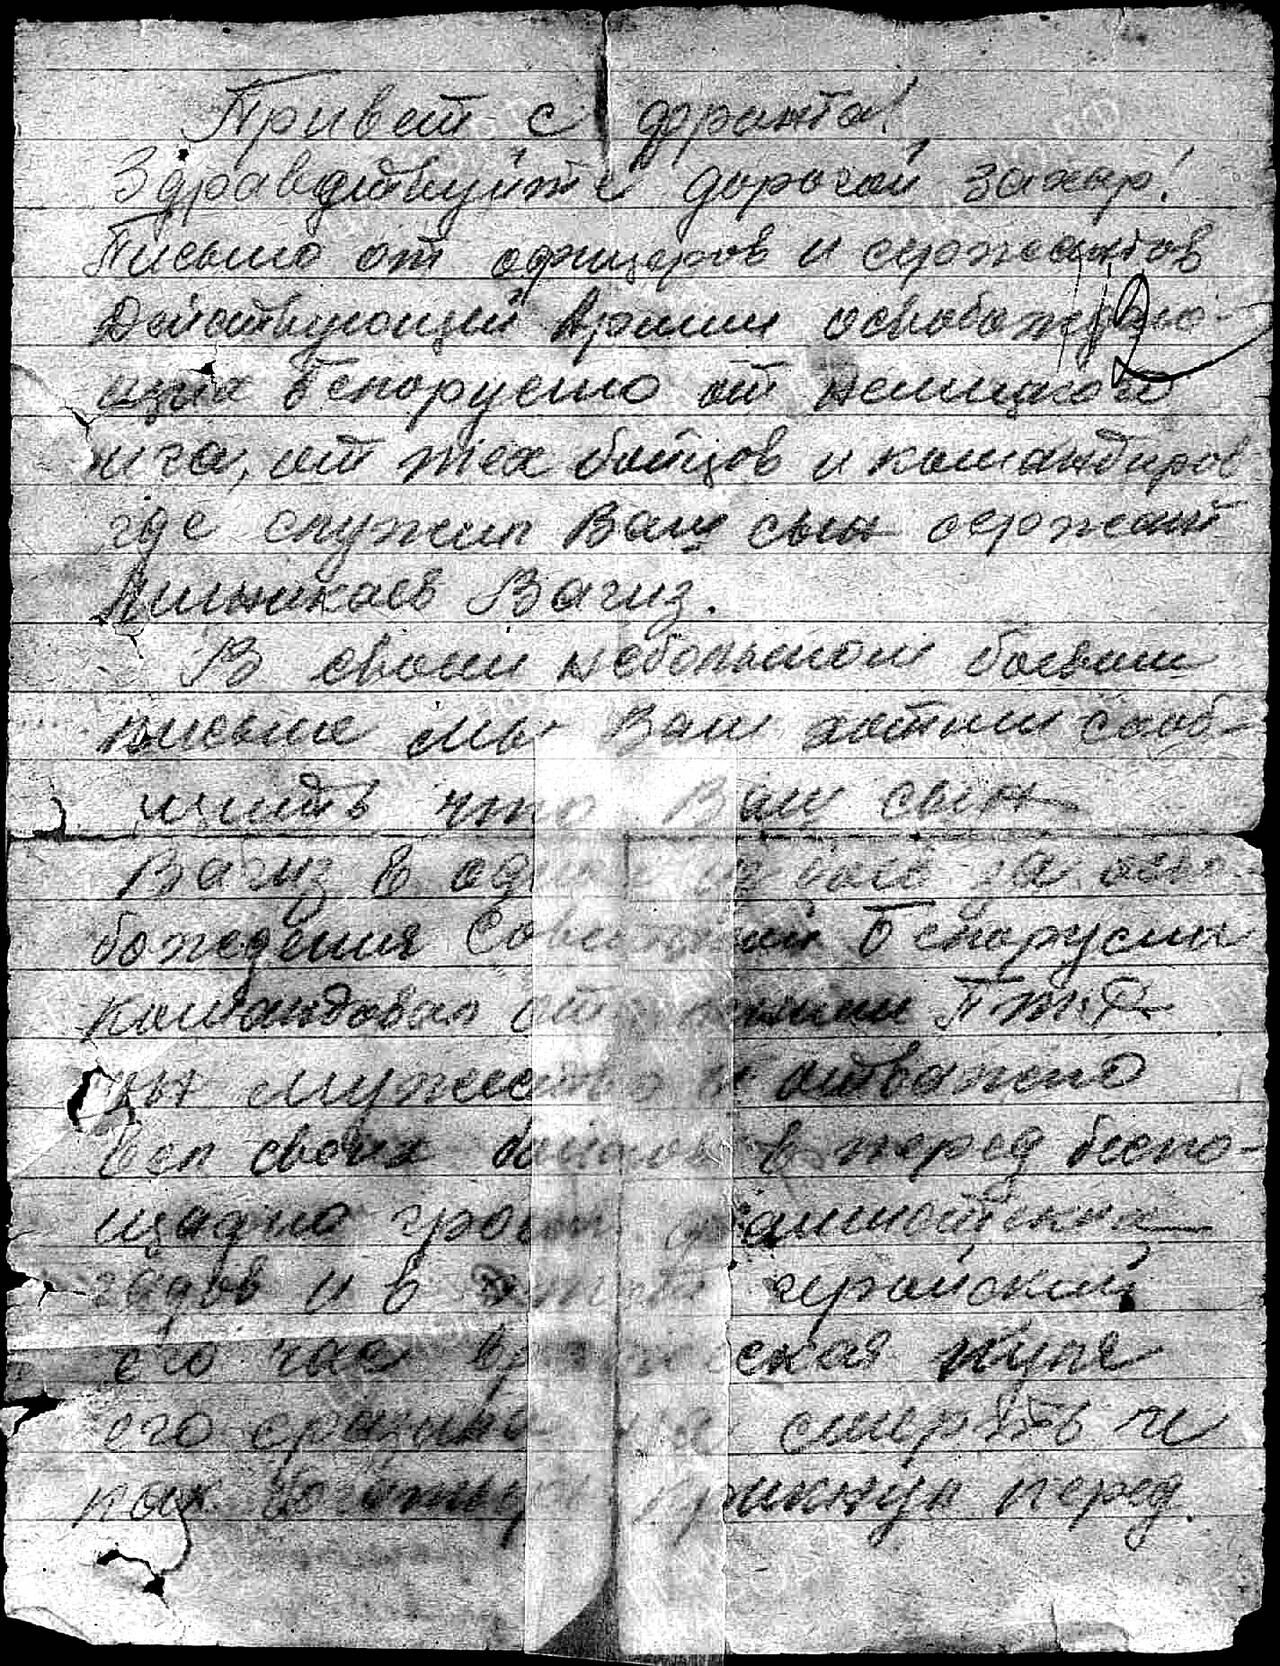 Привет с фронта!
Здравствуйте дорогой Захар!
Письмо от офицеров и сержантов
Действующей Армии освобождаю-
щих Белорусию от немицкого
ига, от тех бойцов и командиров
где служил Ваш сын сержант
Вагиз.
В своем небольшом боевом
письме мы Вам хотим сооб-
щить что Ваш сын
Вагиз в одном из боев за осво-
бождения Советской Белорусии
командовал ПТР
он мужество и отважно
вел своих бойцов в перед беспо-
щадно громя фашистских
гадов и в этот геройский
его час вражеская пуля
его сразила на смерть и
как упал перед.